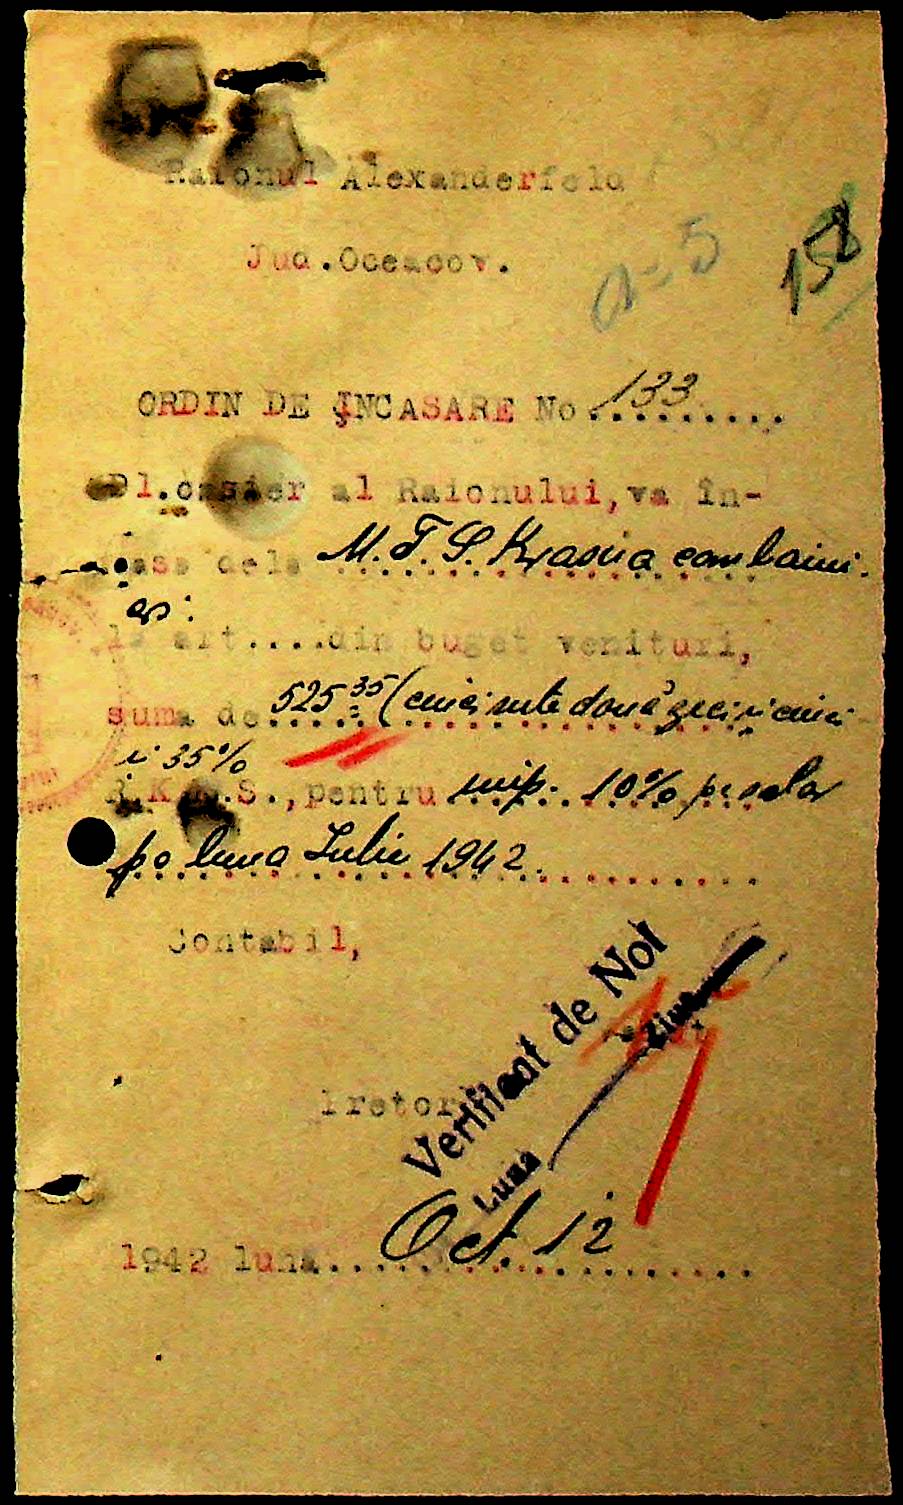 Raionul Alexanderfeld
Jud.Oceacov.
a-5
158
ORDIN DE ÎNCASARE No.133........
Dl.casier al Raionului,va în-
casa dela M.T.S. Krasna combaini
eri
la art....din buget venituri,
suma de 525 35 (cinci sute două zeci și cinci
și 35%
R.K.K.S.,pentru imp. 10% pe salar
pe luna Iulie 1942.
Contabil,
Verificat de Noi
Ziua
Luna
Pretor
1942 luna Oct. 12